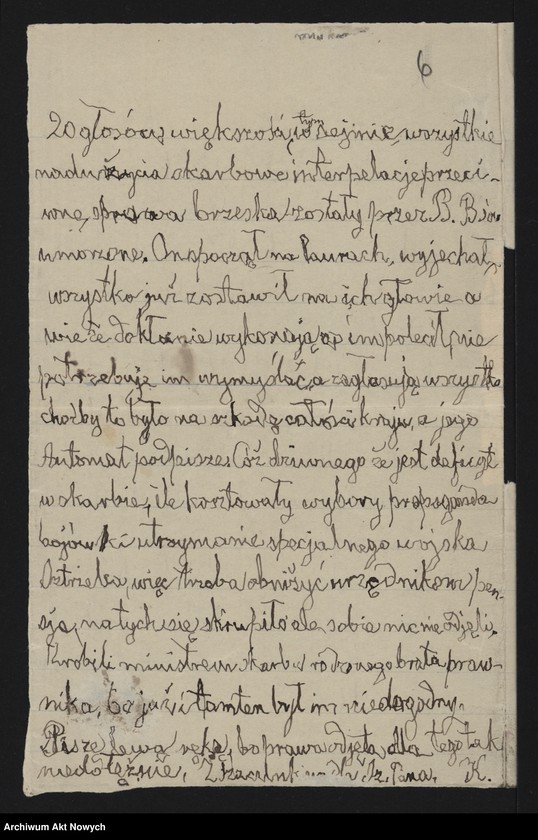 6
20 głosów większości, w tym Sejmie, wszystkie
nadużycia skarbowe interpelacje przeci-
wne, sprawa brzeska zostały przez B. B.
umorzone. On spoczął na laurach, wyjechał,
wszystko już zostawił na ich głowie a
wie że dokładnie wykonają co im polecił, nie
potrzebuję im wymyślać, a zagłosują wszystko
choćby to było na szkodę całości kraju, a jego
Automat podpisze. Cóż dziwnego że jest deficyt
w skarbie, ile kosztowały wybory propaganda
bojówki utrzymanie specjalnego wojska
Ostrzeba, więc trzeba obniżyć urzędnikom pen-
sje, na tych się skrupiło ale sobie nic nie odjęli.
Zrobili ministrem skarbu rodzonego brata praw-
nika, bo już i tamten był im niedogodny.
Piszę lewą ręką, bo prawa odjęta dla tego tak
niedołężnie. Z szacunkiem dla Pana. K.
Archiwum Akt Nowych